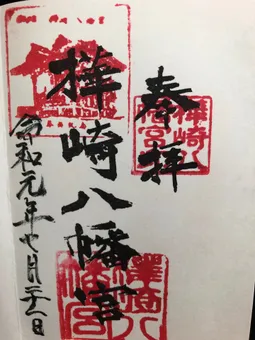 奉拝
樺崎八幡宮
令和元年七月二十一日
樺崎八
幡宮